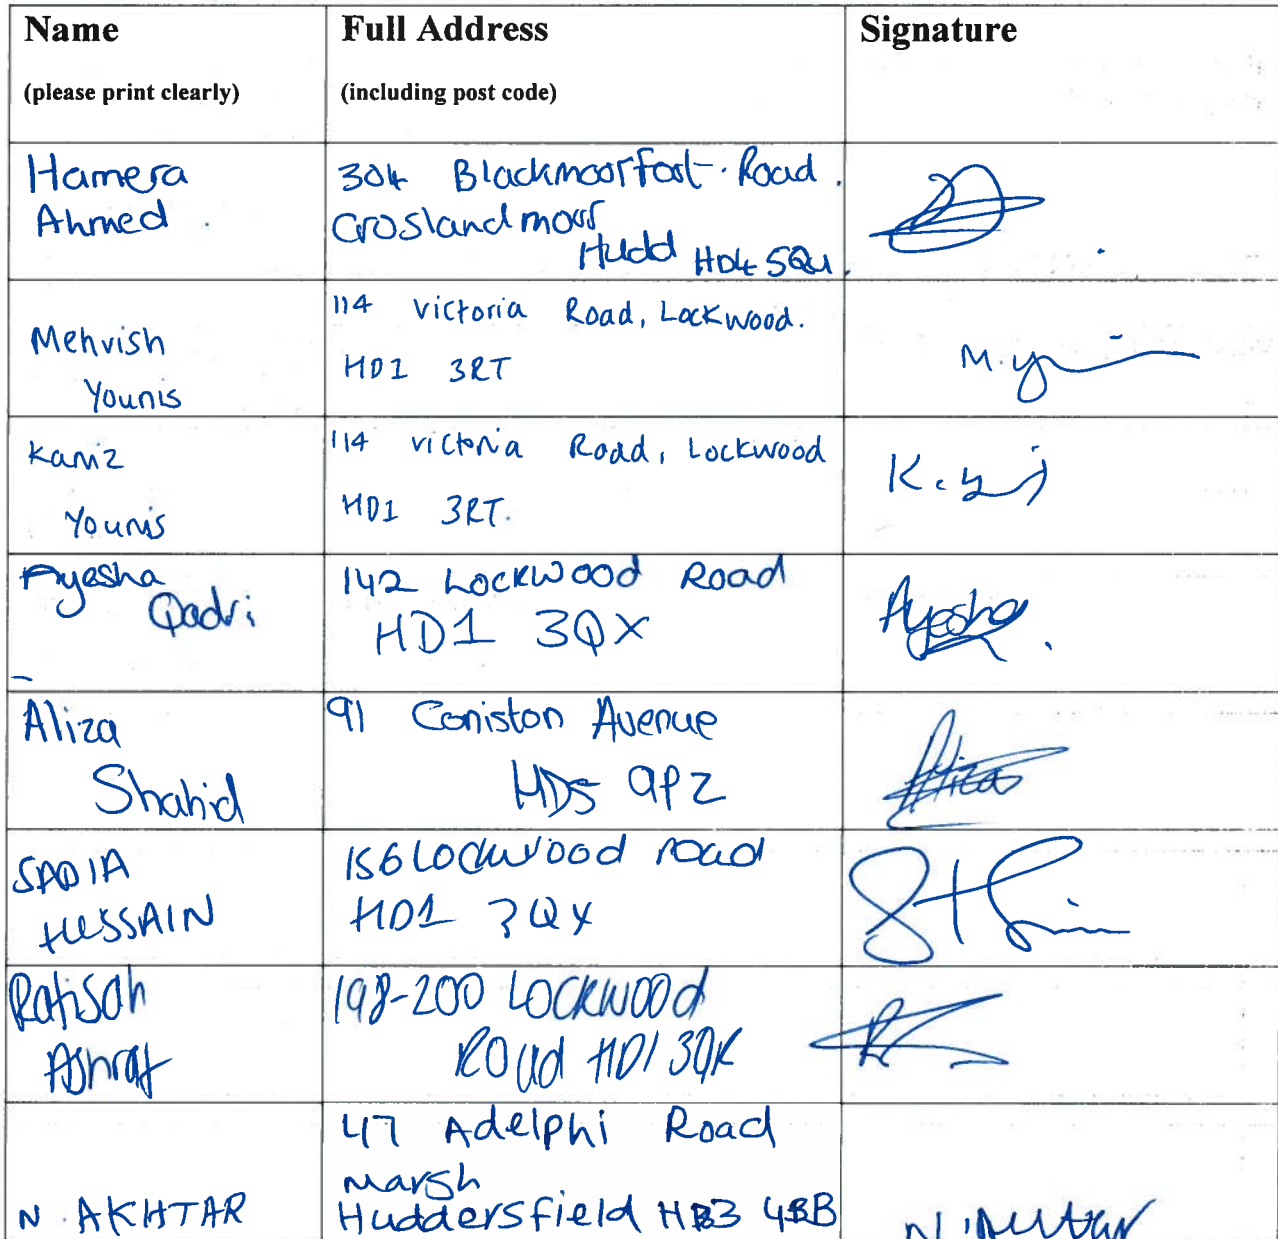 Name Full Address Signature
(please print clearly) (including post code)
Hamera
Ahmed .
304 Blackmoorfoot Road .
Croslandmoor
Hudd HD4 5QU .
Mehvish
Younis
114 Victoria Road, Lockwood.
HD1 3RT
M. Y
Kaniz
Younis
114 Victoria Road, Lockwood
HD1 3RT.
K. Y
Ayesha
Qadri
142 Lockwood Road
HD1 3QX
Ayesha
Aliza
Shahid
91 Coniston Avenue
HD5 9PZ
Aliza
SADIA
HUSSAIN
156 Lockwood road
HD1 3QX
Ashraf
198-200 Lockwood
Road HD1 3QK
N. AKHTAR
47 Adelphi Road
Marsh
Huddersfield HD3 4BB
N. Akhtar